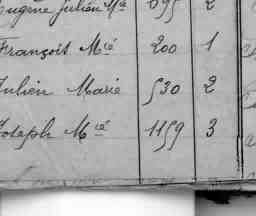 Eugène Julien Mie 695 2
François Mie 200 1
Julien Marie 530 2
Joseph Mie 1159 3